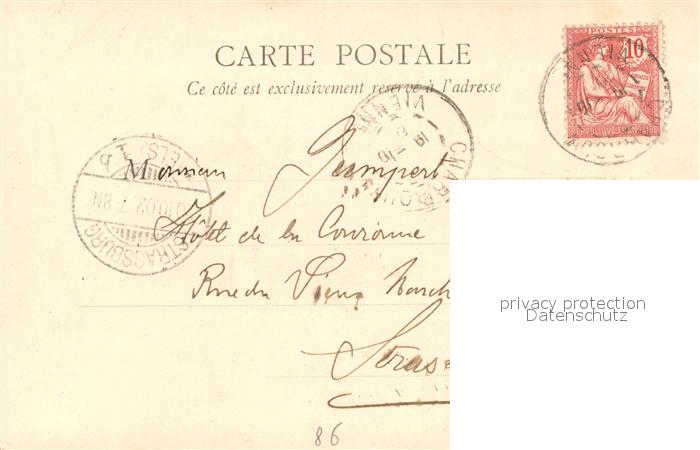 POSTES
10
REPUBLIQUE FRANÇAISE
CARTE POSTALE
Ce côté est exclusivement réservé à l'adresse
VIENNE
STRASSBURG
(ELS) 1
b
10.02.7-8N.
Monsieur Gumpert
Hôtel de la Couronne
Rue du Vieux March
Stras
86
privacy protection
Datenschutz